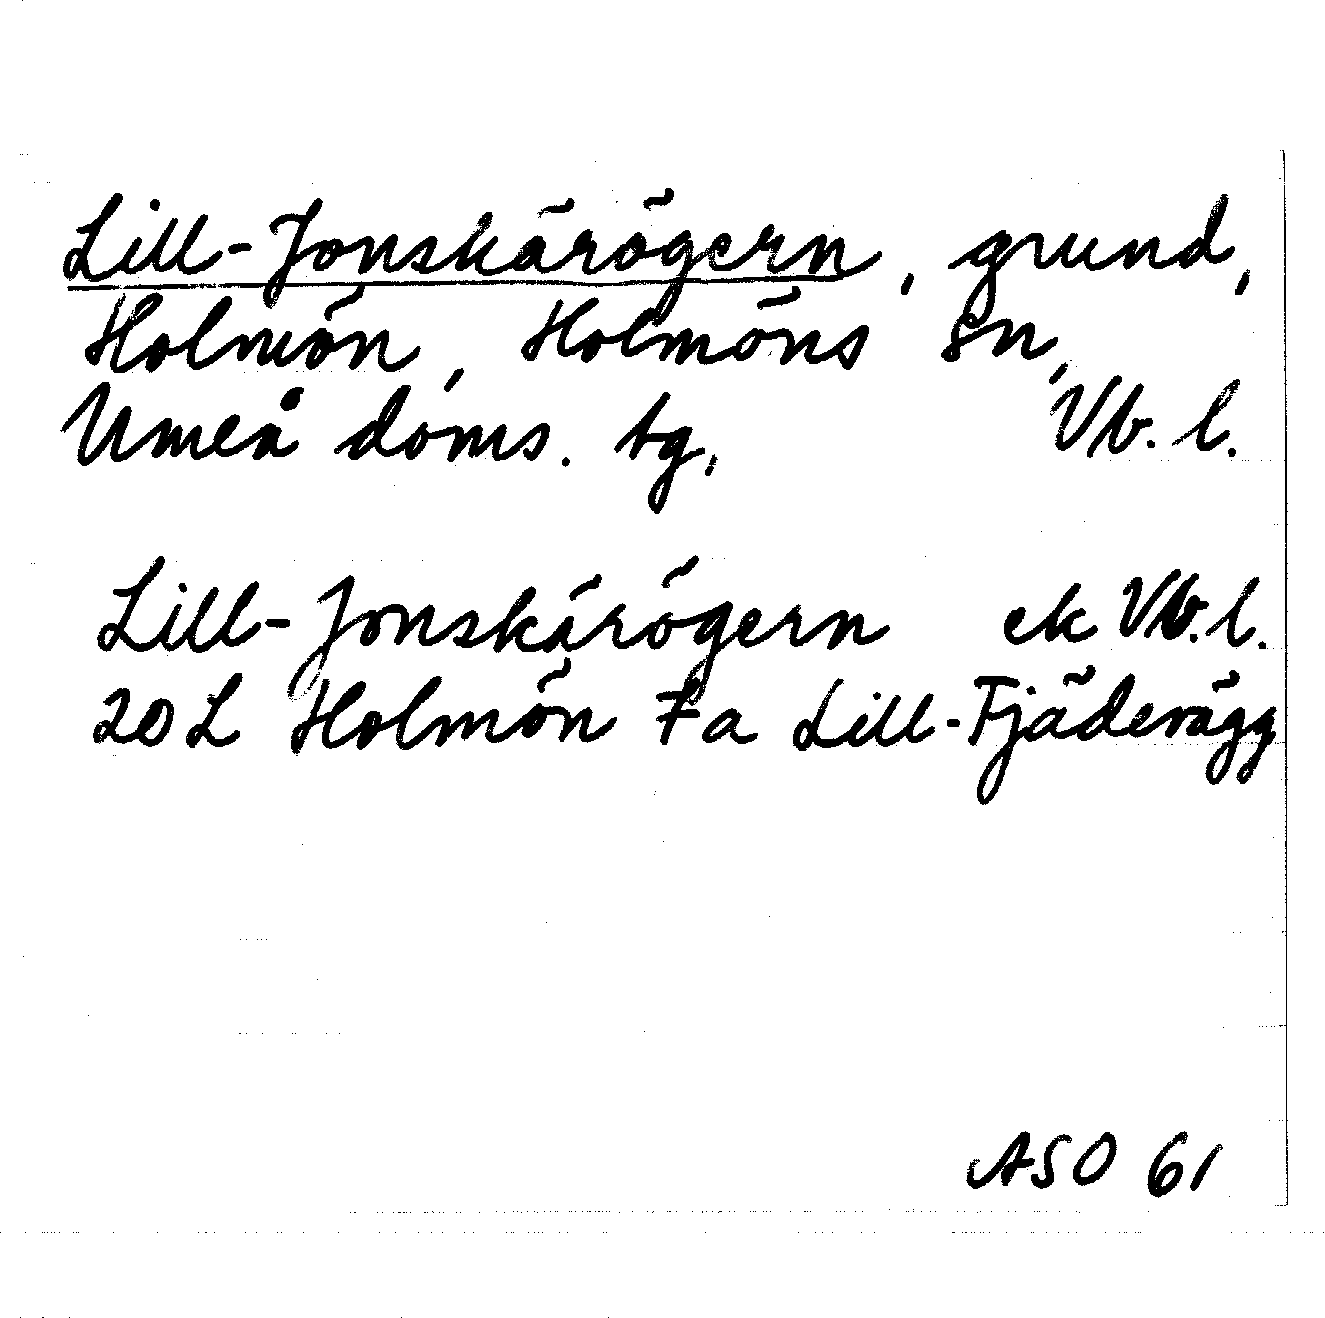 Lill-Jonskärögern, grund,
Holmön, Holmöns sn,
Umeå doms. tg, Vb. l.
Lill-Jonskärögern ek Vb. l.
20 L Holmön 7a Lill-Fjäderägg
ASO 61